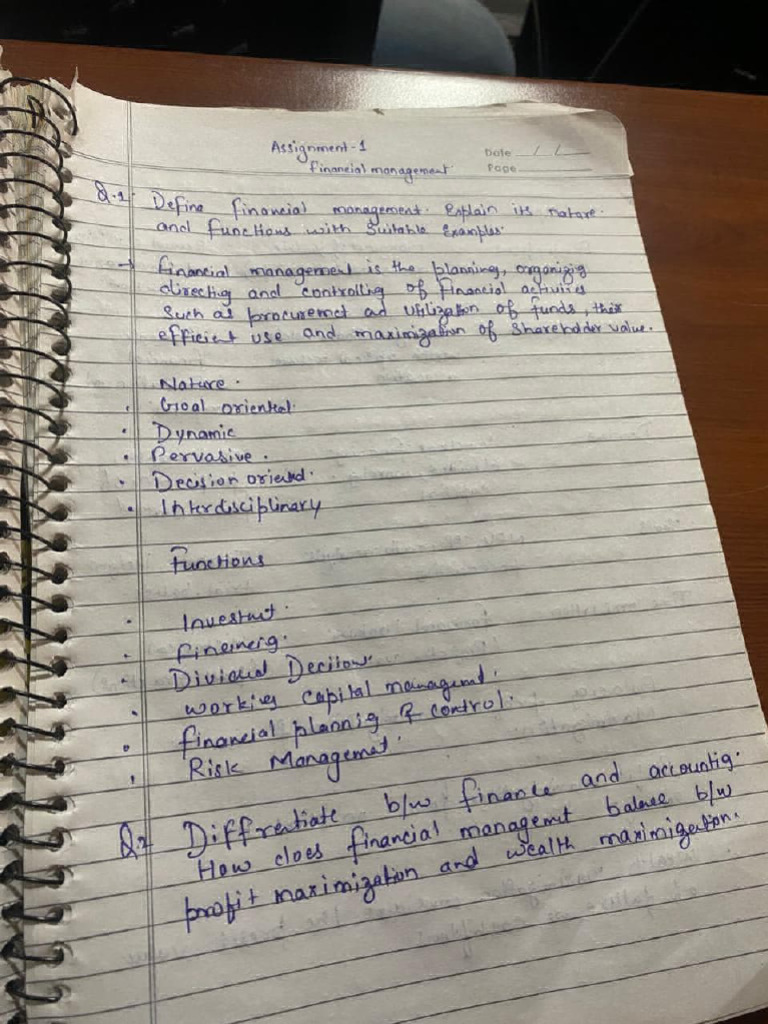 Assignment-1
Date / /
Financial management
Page
Q.1 Define financial management. Explain its nature.
and functions with Suitable Examples.
→ Financial management is the planning, organizig
directig and controllig of financial activities
Such as procuremct ad utilization of funds, their
efficient use and maximization of Shareholder value.
Nature.
• Goal oriented.
• Dynamic
• Pervasive.
• Decision oriend.
• Interdisciplinary
Functions
• Investmt.
• Finencig.
• Dividend Decision.
• working capital managemt.
• financial plannig & control.
• Risk Managemet.
Q.2 Differentiate b/w finance and accountig.
How does financial managemt balance b/w
profit maximization and wealth maximization.